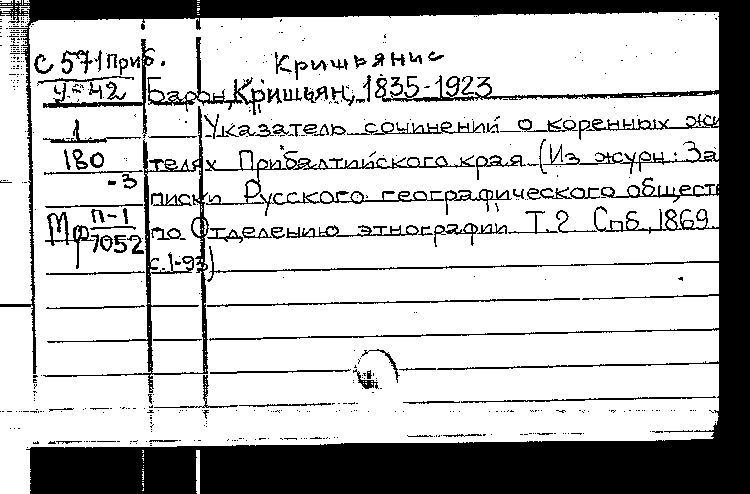 Кришьянис
С 571 Приб.
У-42 Барон, Кришьян, 1835-1923
1 Указатель сочинений о коренных жи
180 телях Прибалтийского края (Из журн: За
-3 писки Русского географического обществ
Мф П-1 7052 по Отделению этнографии Т.2 Спб, 1869.
с.1-93)